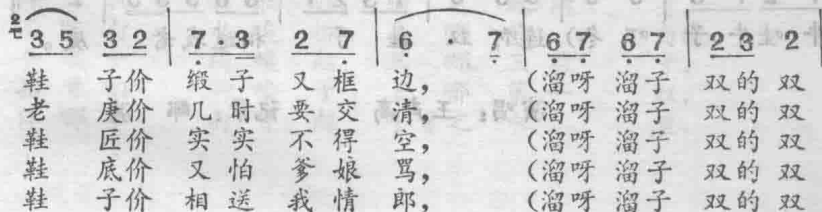 3 5 3 2 | 7 · 3 2 7 | 6 · 7 | 6 7 6 7 | 2 3 2
鞋 子价 缎 子 又 框 边, (溜呀 溜子 双的 双
老 庚价 几 时 要 交 清, (溜呀 溜子 双的 双
鞋 匠价 实 实 不 得 空, (溜呀 溜子 双的 双
鞋 底价 又 怕 爹 娘 骂, (溜呀 溜子 双的 双
鞋 子价 相 送 我 情 郎, (溜呀 溜子 双的 双